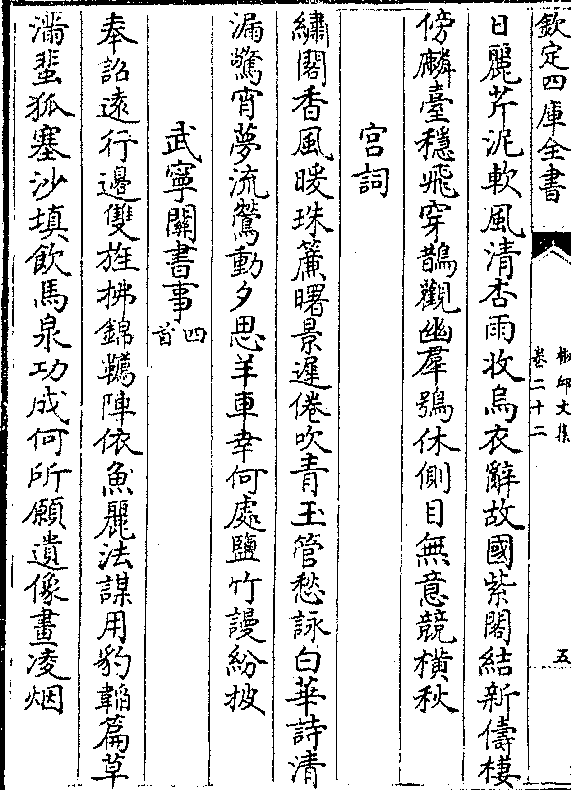 欽定四庫全書
椒邱文集
卷二十二
五
日麗芹泥軟風清杏雨收烏衣辭故國紫閣結新儔棲
傍麟臺穩飛穿鵲觀幽羣鶚休側目無意競橫秋
宮詞
繡閣香風暖珠簾曙景遲倦吹青玉管愁詠白華詩清
漏驚宵夢流鶯動夕思羊車幸何處鹽竹謾紛披
武寧關書事四首
奉詔逺行邊雙旌拂錦韉陣依魚麗法謀用豹韜篇草
滿蜚狐塞沙填飲馬泉功成何所願遺像畫凌烟